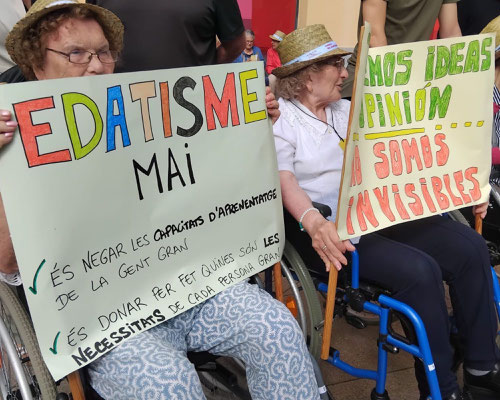 EDATISME
MAI
✓ ÉS NEGAR LES CAPACITATS D'APRENENTATGE
DE LA GENT GRAN
✓ ÉS DONAR PER FET QUINES SÓN LES
NECESSITATS DE CADA PERSONA GRAN
IDEAS
OPINIÓN ...
SOMOS
INVISIBLES